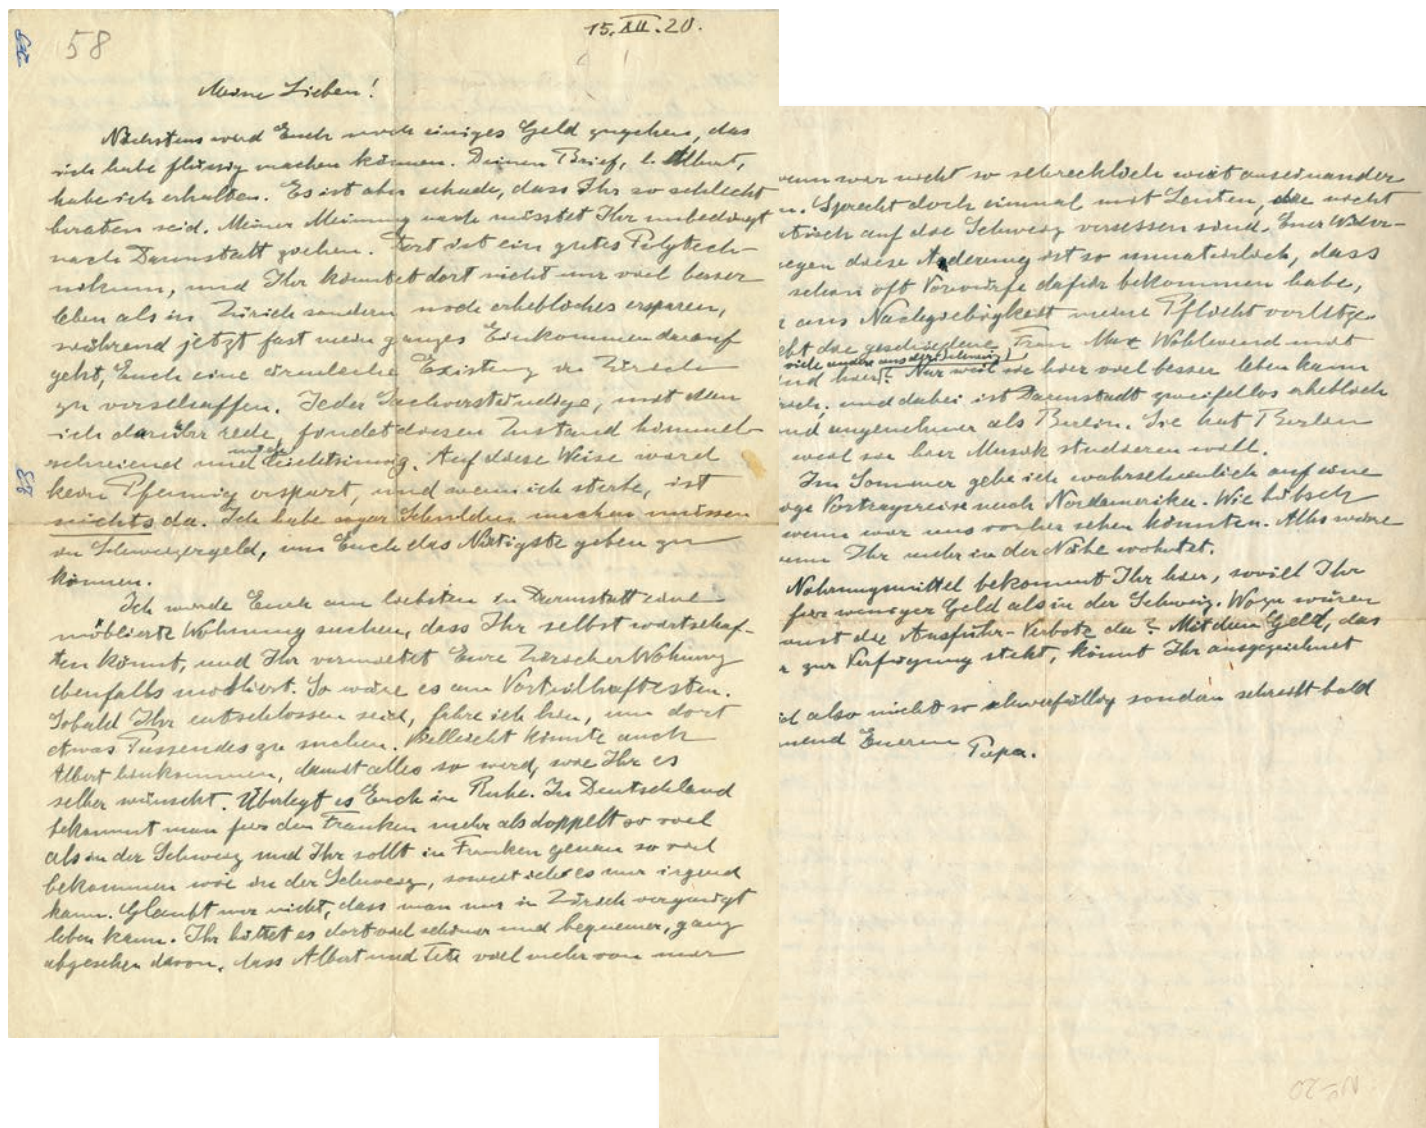 58
15. XII. 20.
Meine Lieben!
Nächstens wird Euch noch einiges Geld zugehen, das
ich habe flüssig machen können. Deinen Brief, l. Albert,
habe ich erhalten. Es ist aber schade, dass Ihr so schlecht
beraten seid. Meiner Meinung nach müsstet Ihr unbedingt
nach Darmstatt ziehen. Dort ist ein gutes Polytech-
nikum, und Ihr könntet dort nicht nur viel besser
leben als in Zürich sondern noch erhebliches ersparen,
während jetzt fast mein ganzes Einkommen darauf
geht, Euch eine ärmliche Existenz in Zürich
zu verschaffen. Jeder Sachverständige, mit dem
ich darüber rede, findet diesen Zustand himmel-
schreiend und leichtsinnig. Auf diese Weise wird
kein Pfennig erspart, und wenn ich sterbe, ist
nichts da. Ich habe sogar Schulden machen müssen
in Schweizergeld, um Euch das Nötigste geben zu
können.
Ich würde Euch am liebsten in Darmstatt eine
möblierte Wohnung suchen, dass Ihr selbst wirtschaf-
ten könnt, und Ihr vermietet Eure Zürcher Wohnung
ebenfalls möbliert. So wäre es am Vorteilhaftesten.
Sobald Ihr entschlossen seid, fahre ich hin, um dort
etwas Passendes zu suchen. Vielleicht könnte auch
Albert hinkommen, damit alles so wird, wie Ihr es
selber wünscht. Überlegt es Euch in Ruhe. In Deutschland
bekommt man für den Franken mehr als doppelt so viel
als in der Schweiz und Ihr sollt in Franken genau so viel
bekommen wie in der Schweiz, soweit ich es nur irgend
kann. Glaubt mir nicht, dass man nur in Zürich vergnügt
leben kann. Ihr hättet es dort viel schöner und bequemer, ganz
abgesehen davon, dass Albert und Tete viel mehr von mir
wenn wir nicht so schrecklich weit auseinander
Sprecht doch einmal mit Leuten, die nicht
auf die Schweiz versessen sind. Euer Wider-
gegen diese Änderung ist so unnatürlich, dass
schon oft Vorwürfe dafür bekommen habe,
aus Nachgiebigkeit meine Pflicht verletze.
die geschiedene Frau Max Wohlwend mit
viele andere aus der Schweiz)
hier? Nur weil sie hier viel besser leben kann
und dabei ist Darmstadt zweifellos erheblich
angenehmer als Berlin. Sie hat Berlin
weil sie hier Musik studieren will.
Im Sommer gehe ich wahrscheinlich auf eine
Vortragsreise nach Nordamerika. Wie hübsch
wenn wir uns vorher sehen könnten. Alles wäre
Ihr mehr in der Nähe wohntet.
Nahrungsmittel bekommt Ihr hier, soviel Ihr
für weniger Geld als in der Schweiz. Wozu wären
die Ausfuhr-Verbote da? Mit dem Geld, das
zur Verfügung steht, könnt Ihr ausgezeichnet
also nicht so schwerfällig sondern schreibt bald
Euerem Papa.